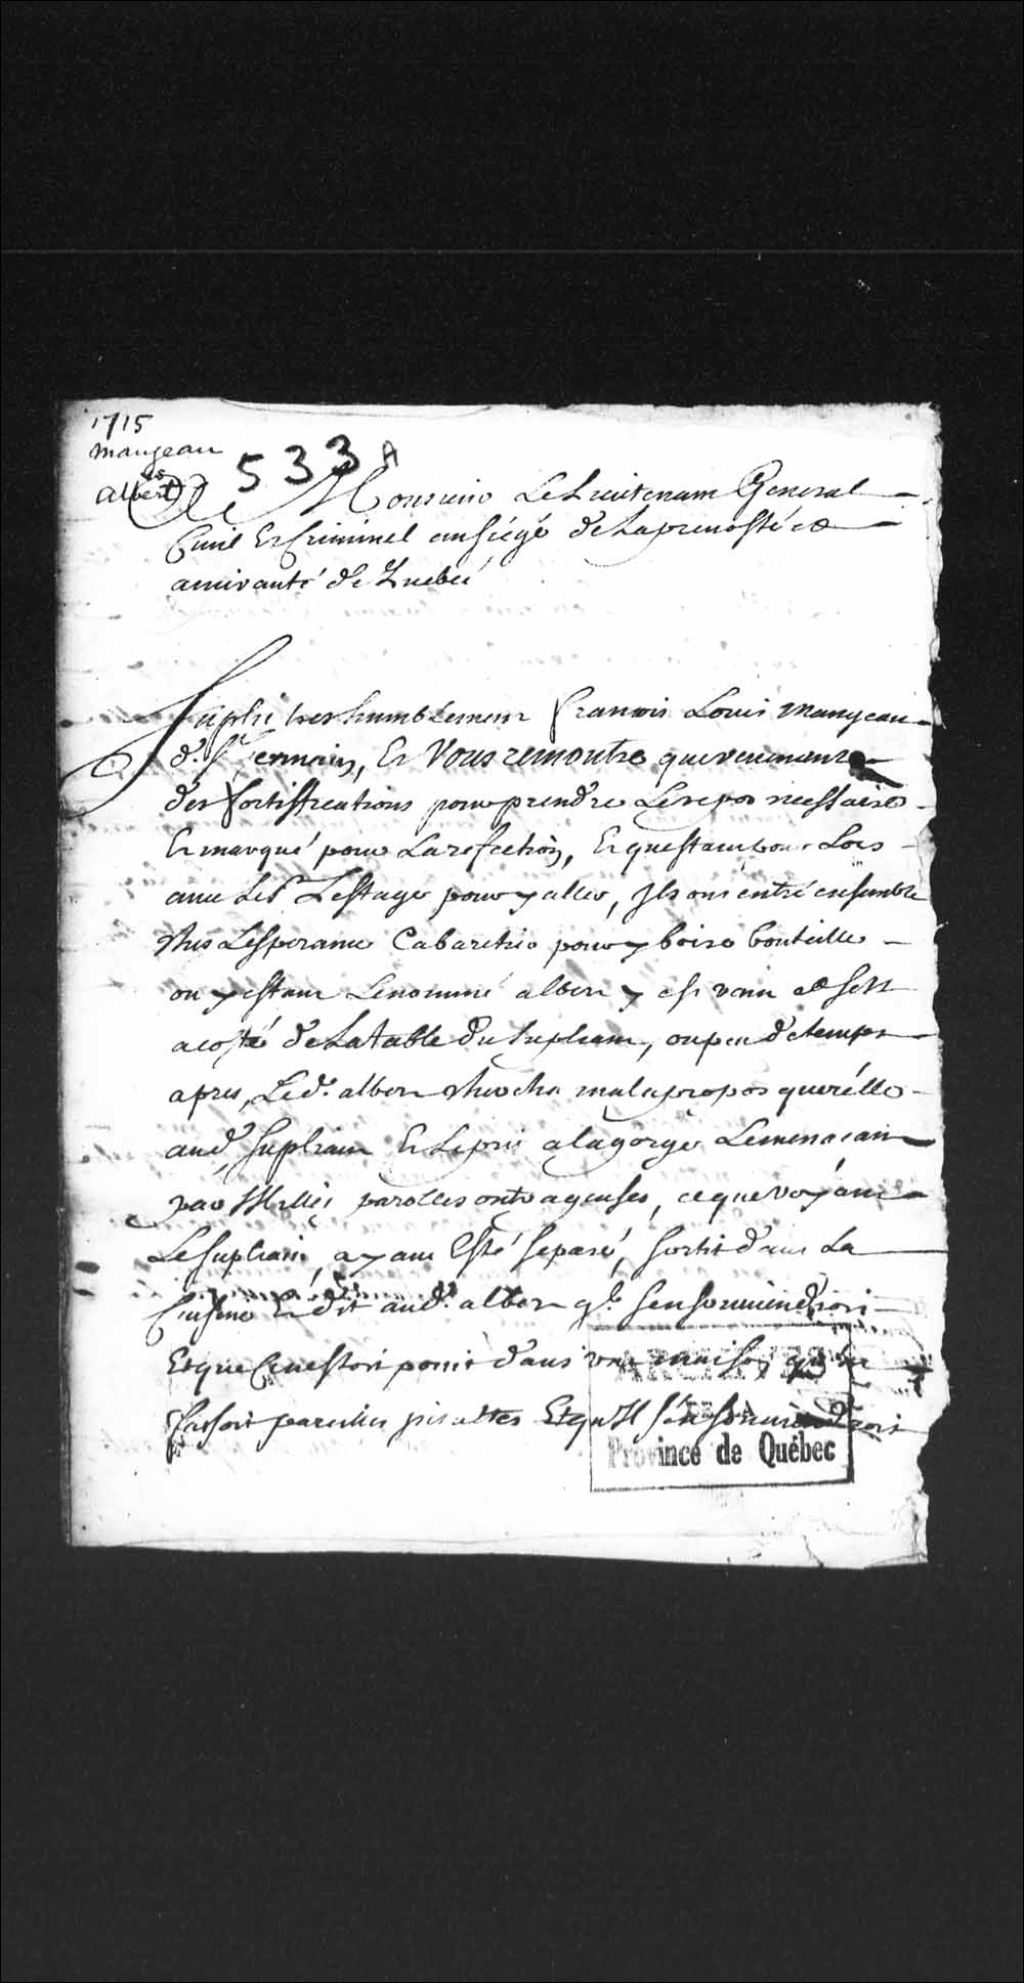 1715
mangeau
vs
Albert
533 A
A Monsieur Le Lieutenam General
Civil Et Criminel au siége de La prevosté et
amirauté de Quebec
Suplie tres humblemens francois Louis mangeau
dt. St. Germain, Et Vous remontre que revenans
des fortiffications pour prendre Le repos necessaire
Et marqué pour La refection, Et questans Lors
avec Le Sr Lestage pour y aller, Ils ons entré ensemble
Ches Lesperance Cabaretier pour y boire bouteille
ou y estans Le nommé albert y est venu et
a costé de La table du supliant, ou peu de temps
apres, Led. albert chercha mal a propos querelle
aud. supliant Et Le pris a la gorge Le menacant
par Milles parolles outrageuses, ce que voyant
Le supliant, ayant Esté separé, sortit dans La
Cuisine Et dit aud. albert ql. sen souviendroit
Et que ce nestoit point dans une maison
faisoit pareilles Et quIl sen souviendroit
ARCHIVES
DE LA
Province de Québec